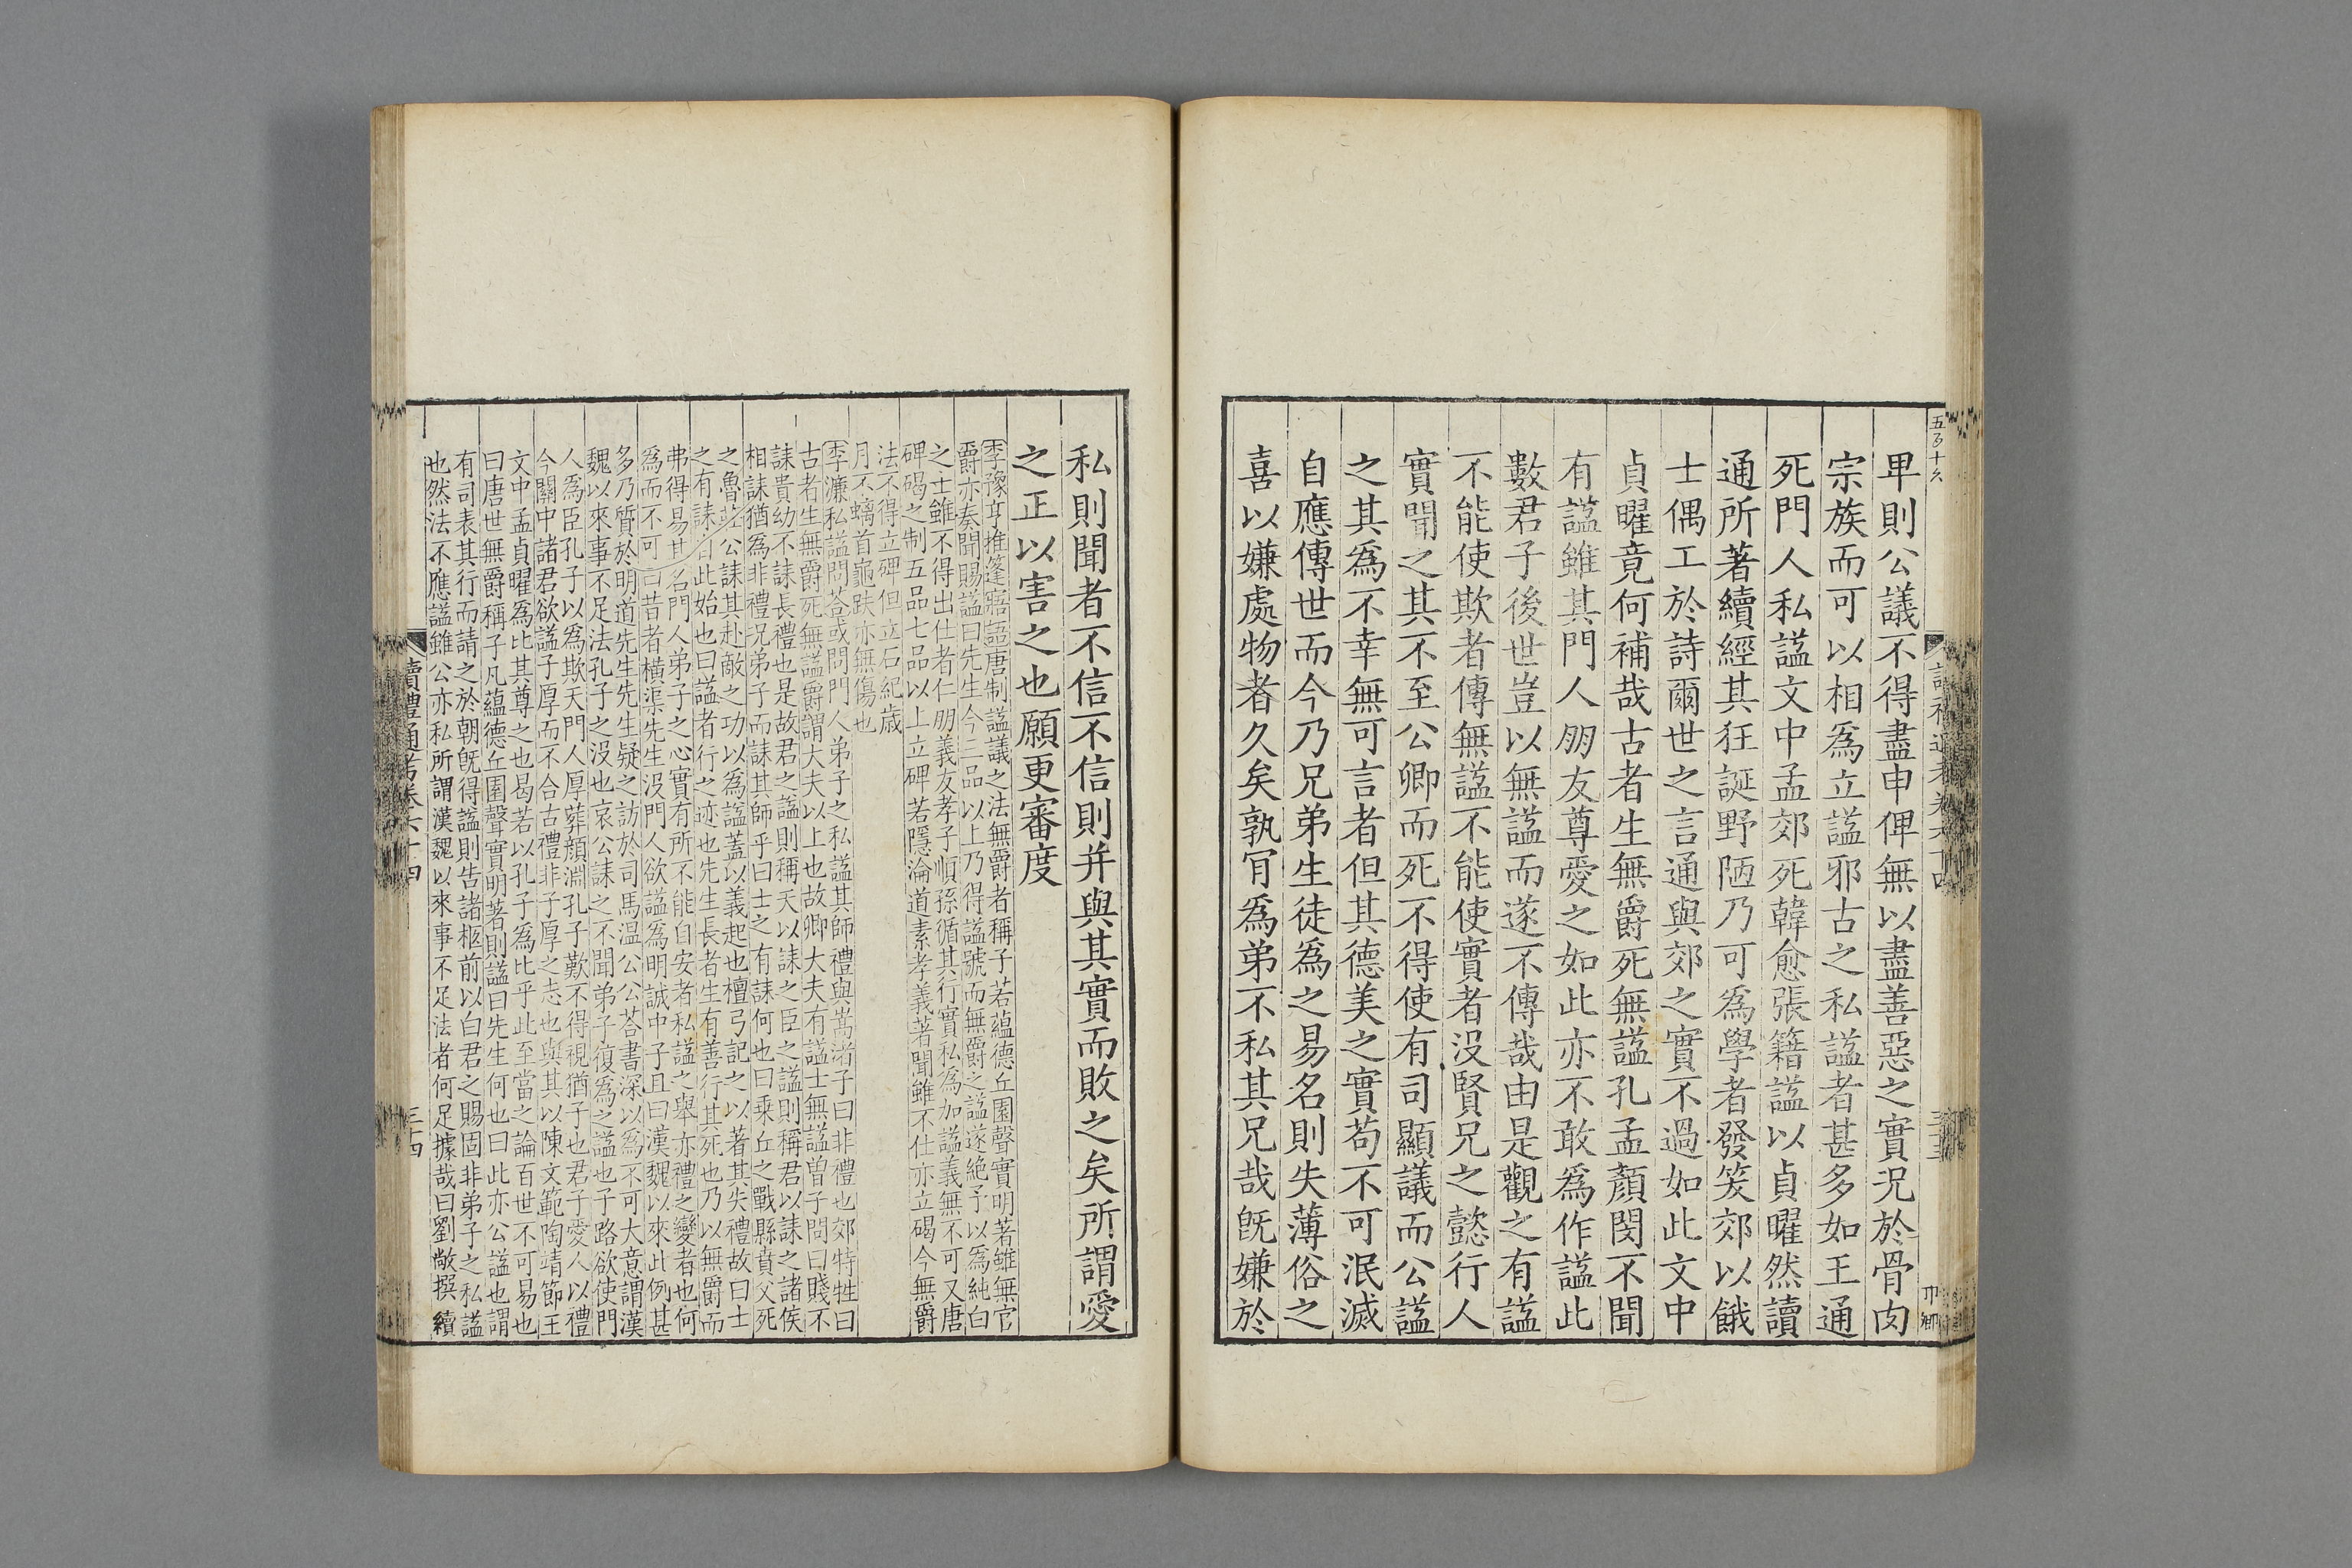 卑則公議不得盡申俾無以盡善惡之實況於骨肉
宗族而可以相爲立謚邪古之私謚者甚多如王通
死門人私謚文中孟郊死韓愈張籍謚以貞曜然讀
通所著續經其狂誕野陋乃可爲學者發笑郊以餓
士偶工於詩爾世之言通與郊之實不過如此文中
貞曜竟何補哉古者生無爵死無謚孔孟顏閔不聞
有謚雖其門人朋友尊愛之如此亦不敢爲作謚此
數君子後世豈以無謚而遂不傳哉由是觀之有謚
不能使欺者傳無謚不能使實者没賢兄之懿行人
實聞之其不至公卿而死不得使有司顯議而公謚
之其爲不幸無可言者但其德美之實苟不可泯滅
自應傳世而今乃兄弟生徒爲之易名則失薄俗之
喜以嫌處物者久矣孰肎爲弟不私其兄哉旣嫌於
私則聞者不信不信則并與其實而敗之矣所謂愛
之正以害之也願更審度
李豫亨推篷寤語唐制謚議之法無爵者稱子若蘊德丘園聲實明著雖無官
爵亦奏聞賜謚曰先生今三品以上乃得謚號而無爵之謚遂絶予以爲純白
之士雖不得出仕者仁朋義友孝子順孫循其行實私爲加謚義無不可又唐
碑碣之制五品七品以上立碑若隱淪道素孝義著聞雖不仕亦立碣今無爵
法不得立碑但立石紀歲
月不螭首龜趺亦無傷也
李濂私謚問荅或問門人弟子之私謚其師禮與嵩渚子曰非禮也郊特牲曰
古者生無爵死無謚爵謂大夫以上也故卿大夫有謚士無謚曽子問曰賤不
誄貴幼不誄長禮也是故君之謚則稱天以誄之臣之謚則稱君以誄之諸侯
相誄猶爲非禮況弟子而誄其師乎曰士之有誄何也曰乘丘之戰縣賁父死
之魯莊公誄其赴敵之功以爲謚蓋以義起也檀弓記之以著其失禮故曰士
之有誄自此始也曰謚者行之迹也先生長者生有善行其死也乃以無爵而
弗得易其名門人弟子之心實有所不能自安者私謚之舉亦禮之變者也何
爲而不可曰昔者橫渠先生没門人欲謚爲明誠中子且曰漢魏以來此例甚
多乃質於明道先生先生疑之訪於司馬温公公荅書深以爲不可大意謂漢
魏以來事不足法孔子之没也哀公誄之不聞弟子復爲之謚也子路欲使門
人爲臣孔子以爲欺天門人厚葬顔淵孔子歎不得視猶子也君子愛人以禮
今關中諸君欲謚子厚而不合古禮非子厚之志也與其以陳文範陶靖節王
文中孟貞曜爲比其尊之也曷若以孔子爲比乎此至當之論百世不可易也
曰唐世無爵稱子凡蘊德丘園聲實明著則謚曰先生何也曰此亦公謚也謂
有司表其行而請之於朝旣得謚則告諸柩前以白君之賜固非弟子之私謚
也然法不應謚雖公亦私所謂漢魏以來事不足法者何足據哉曰劉敞撰續
讀禮通考卷六十四
三四